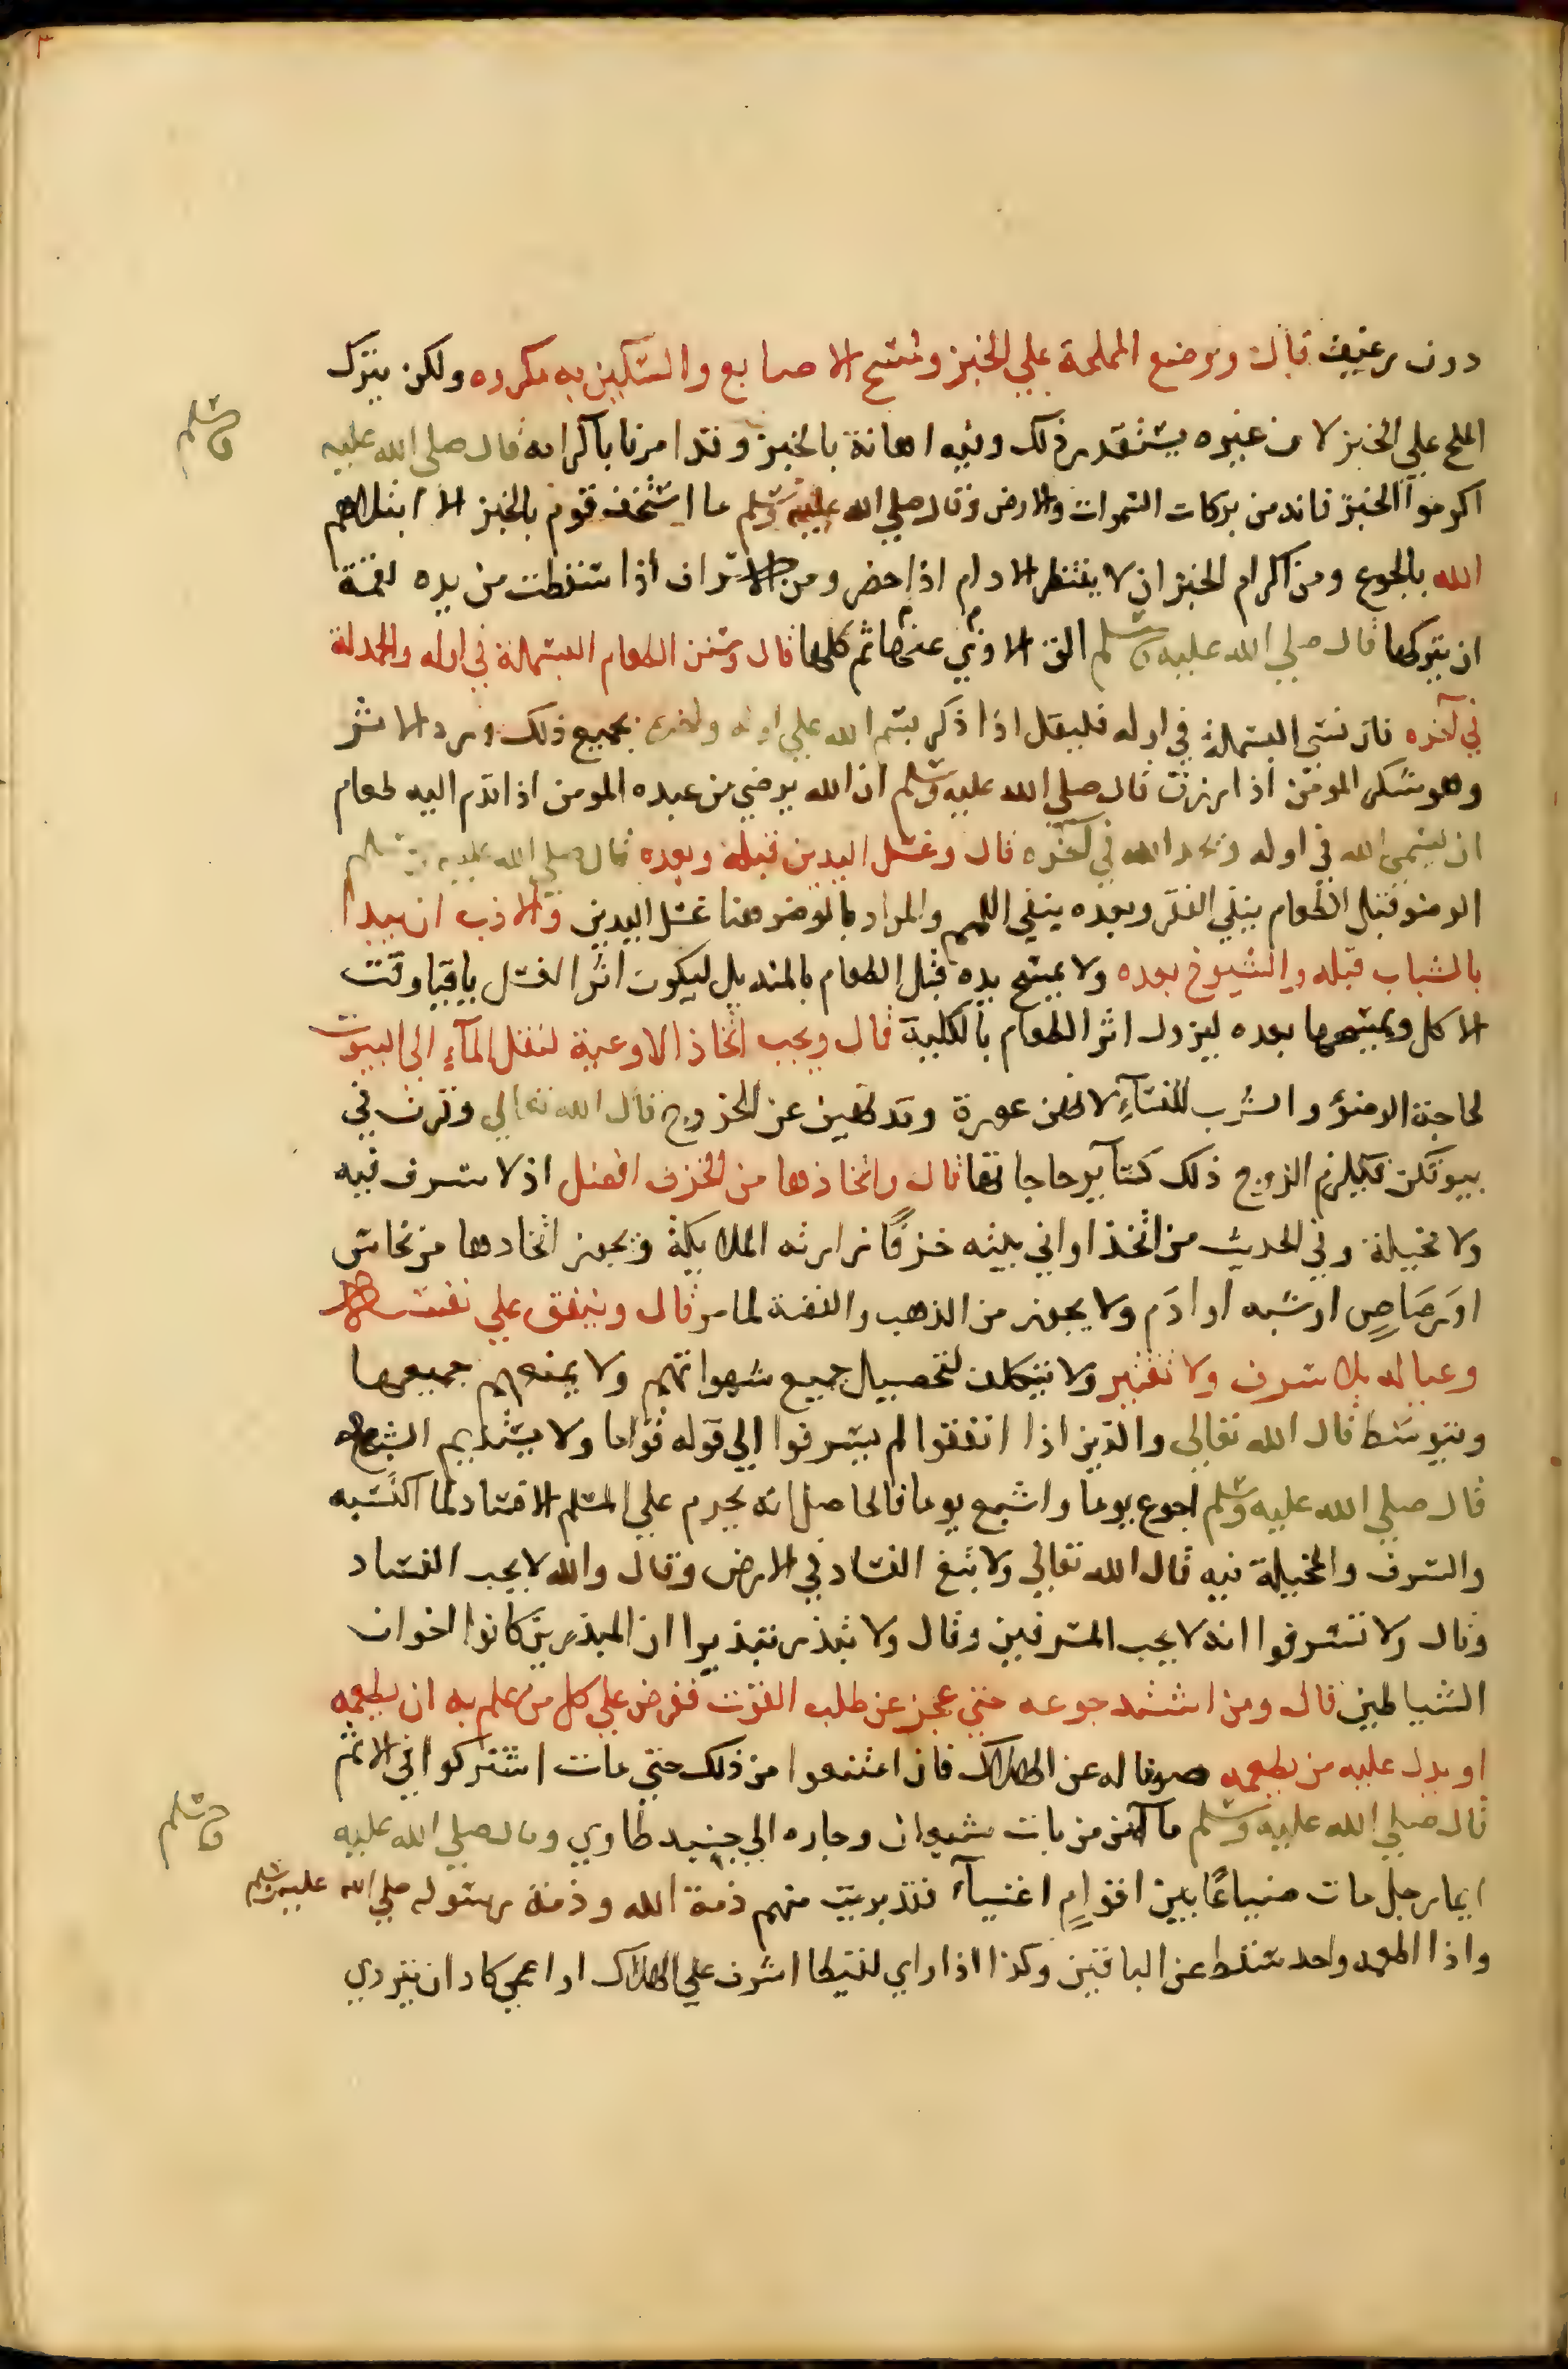 دون رغيف قال ووضع المملحة علي الخبز ومسح الاصابع والسكين به مكروه ولكن يترك
الملح علي الخبز لان غيره يستقدر ذلك وفيه اهانة بالخبز وقد امرنا باكرامه قال صلي الله عليه
وسلم
اكرموا الخبز فانه من بركات السموات والارض وقال صلي الله عليه وسلم ما استخف قوم بالخبز الا ابتلاهم
الله بالجوع ومن اكرام الخبز ان لا ينتظر الادام اذا حضر ومن الاسراف اذا سقطت من يده لقمة
ان يتركها قال صلي الله عليه وسلم الق الاذي عنها ثم كلها قال وسنن الطعام البسملة في اوله والحمدلة
في آخره فان نسي البسملة في اوله فليقل اذا ذكر بسم الله علي اوله واخره بجميع ذلك ورد الاثر
وهو شكر المومن اذا رزق قال صلي الله عليه وسلم ان الله يرضي من عبده المومن اذا قدم اليه طعام
ان يسمي الله في اوله ويحمد الله في آخره قال وغسل اليدين قبله وبعده قال صلي الله عليه وسلم
الوضو قبل الطعام ينفي الفقر وبعده ينفي اللمم والمراد بالوضو هنا غسل اليدين والادب ان يبدا
بالشباب قبله والشيوخ بعده ولا يمسح يده قبل الطعام بالمنديل ليكون اثر الغسل باقيا وقت
الاكل ويمسحها بعده ليزول اثر الطعام بالكلية قال ويجب اتخاذ الاوعية لنقل المآء الي البيوت
لحاجة الوضؤ والشرب للنسآء لانهن عورة وقد نهين عن الخروج قال الله تعالي وقرن في
بيوتكن فيلزم الزوج ذلك كسآير حاجاتها قال واتخاذها من الخزف افضل اذ لا سرف فيه
ولا مخيلة وفي الحديث من اتخذ اواني بيته خزفا زارته الملايكة ويجوز اتخادها من نحاس
او رصاص او شبه او ادم ولا يجوز من الذهب والفضة لما مر قال وينفق علي نفسه
وعياله بلا سرف ولا تقتير ولا يتكلف لتحصيل جميع شهواتهم ولا يمنعهم جميعها
ويتوسط قال الله تعالي والذين اذا انفقوا لم يسرفوا الي قوله قواما ولا يستديم الشبع
قال صلي الله عليه وسلم اجوع يوما واشبع يوما فالحاصل انه يحرم علي المسلم الافساد لما اكتسبه
والسرف والمخيلة فيه قال الله تعالي ولا تبغ الفساد في الارض وقال والله لا يحب الفساد
وقال ولا تسرفوا انه لا يحب المسرفين وقال ولا تبذر تبذيرا ان المبذرين كانوا اخوان
الشياطين قال ومن اشتد جوعه حتي عجز عن طلب القوت ففرض علي كل من علم به ان يطعمه
او يدل عليه من يطعمه صونا له عن الهلاك فان امتنعوا من ذلك حتي مات اشتركوا في الاثم
قال صلي الله عليه وسلم ما آمن من بات شبعان وجاره الي جنبه طاوي وقال صلي الله عليه
وسلم
ايما رجل مات ضياعًا بين اقوامٍ اغنيآء فقد بريت منهم ذمة الله وذمة رسوله صلي الله عليه وسلم
واذا اطعمه واحد سقط عن الباقين وكذا اذا راي لقيطا اشرف علي الهلاك او اعمي كاد ان يتردي